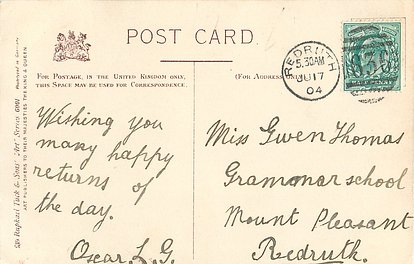 POST CARD
FOR POSTAGE, IN THE UNITED KINGDOM ONLY,
THIS SPACE MAY BE USED FOR CORRESPONDENCE.
(FOR ADDRESS ONLY
REDRUTH
5.30AM
JU 17
04
Wishing you
many happy
returns of
the day.
Oscar L. G.
Miss Gwen Thomas
Grammar school
Mount Pleasant
Redruth.
Raphael Tuck & Sons' "Art" Series
ART PUBLISHERS TO THEIR MAJESTIES THE KING & QUEEN